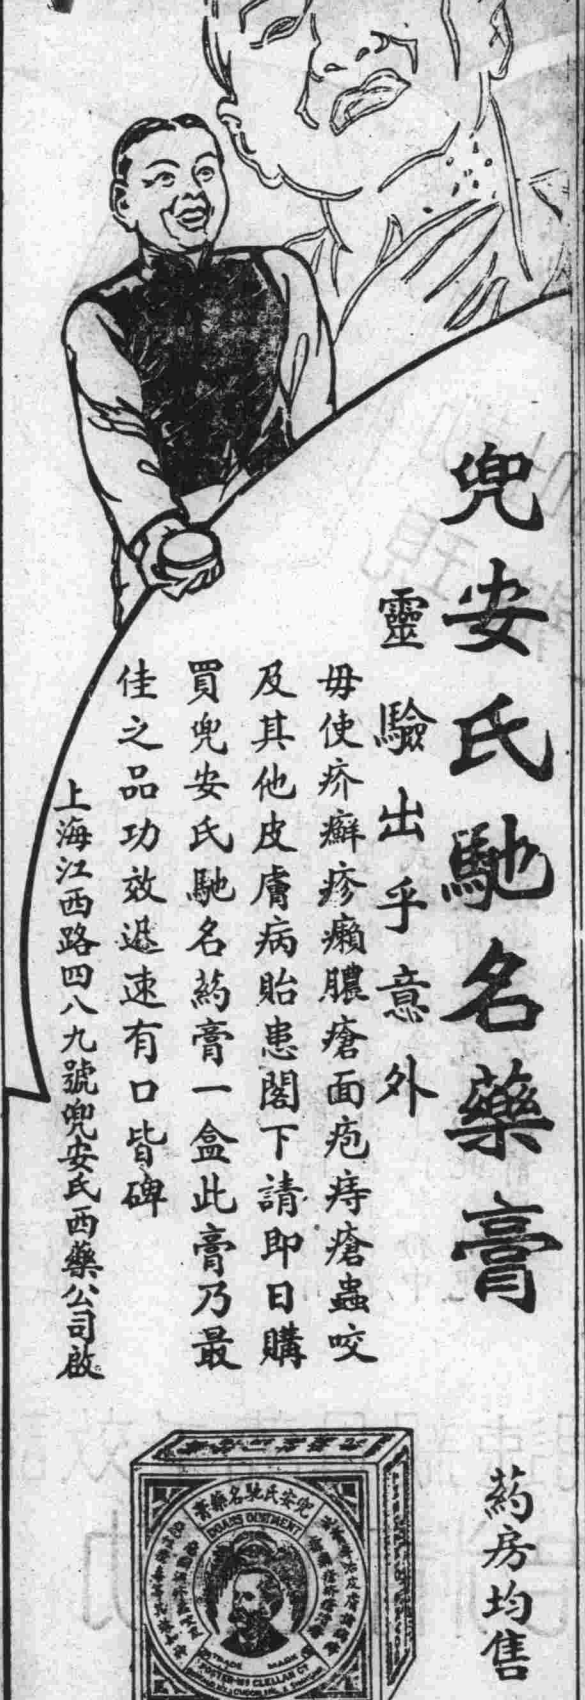 兜安氏馳名藥膏
靈驗出乎意外
毋使疥癬疹癩膿瘡面疱痔瘡蟲咬
及其他皮膚病貽患閣下請即日購
買兜安氏馳名葯膏一盒此膏乃最
佳之品功效迅速有口皆碑
上海江西路四八九號兜安氏西藥公司啟
葯房均售
兜安氏馳名藥膏
DOAN'S OINTMENT
TRADE MARK
FOSTER-MCCLELLAN CO